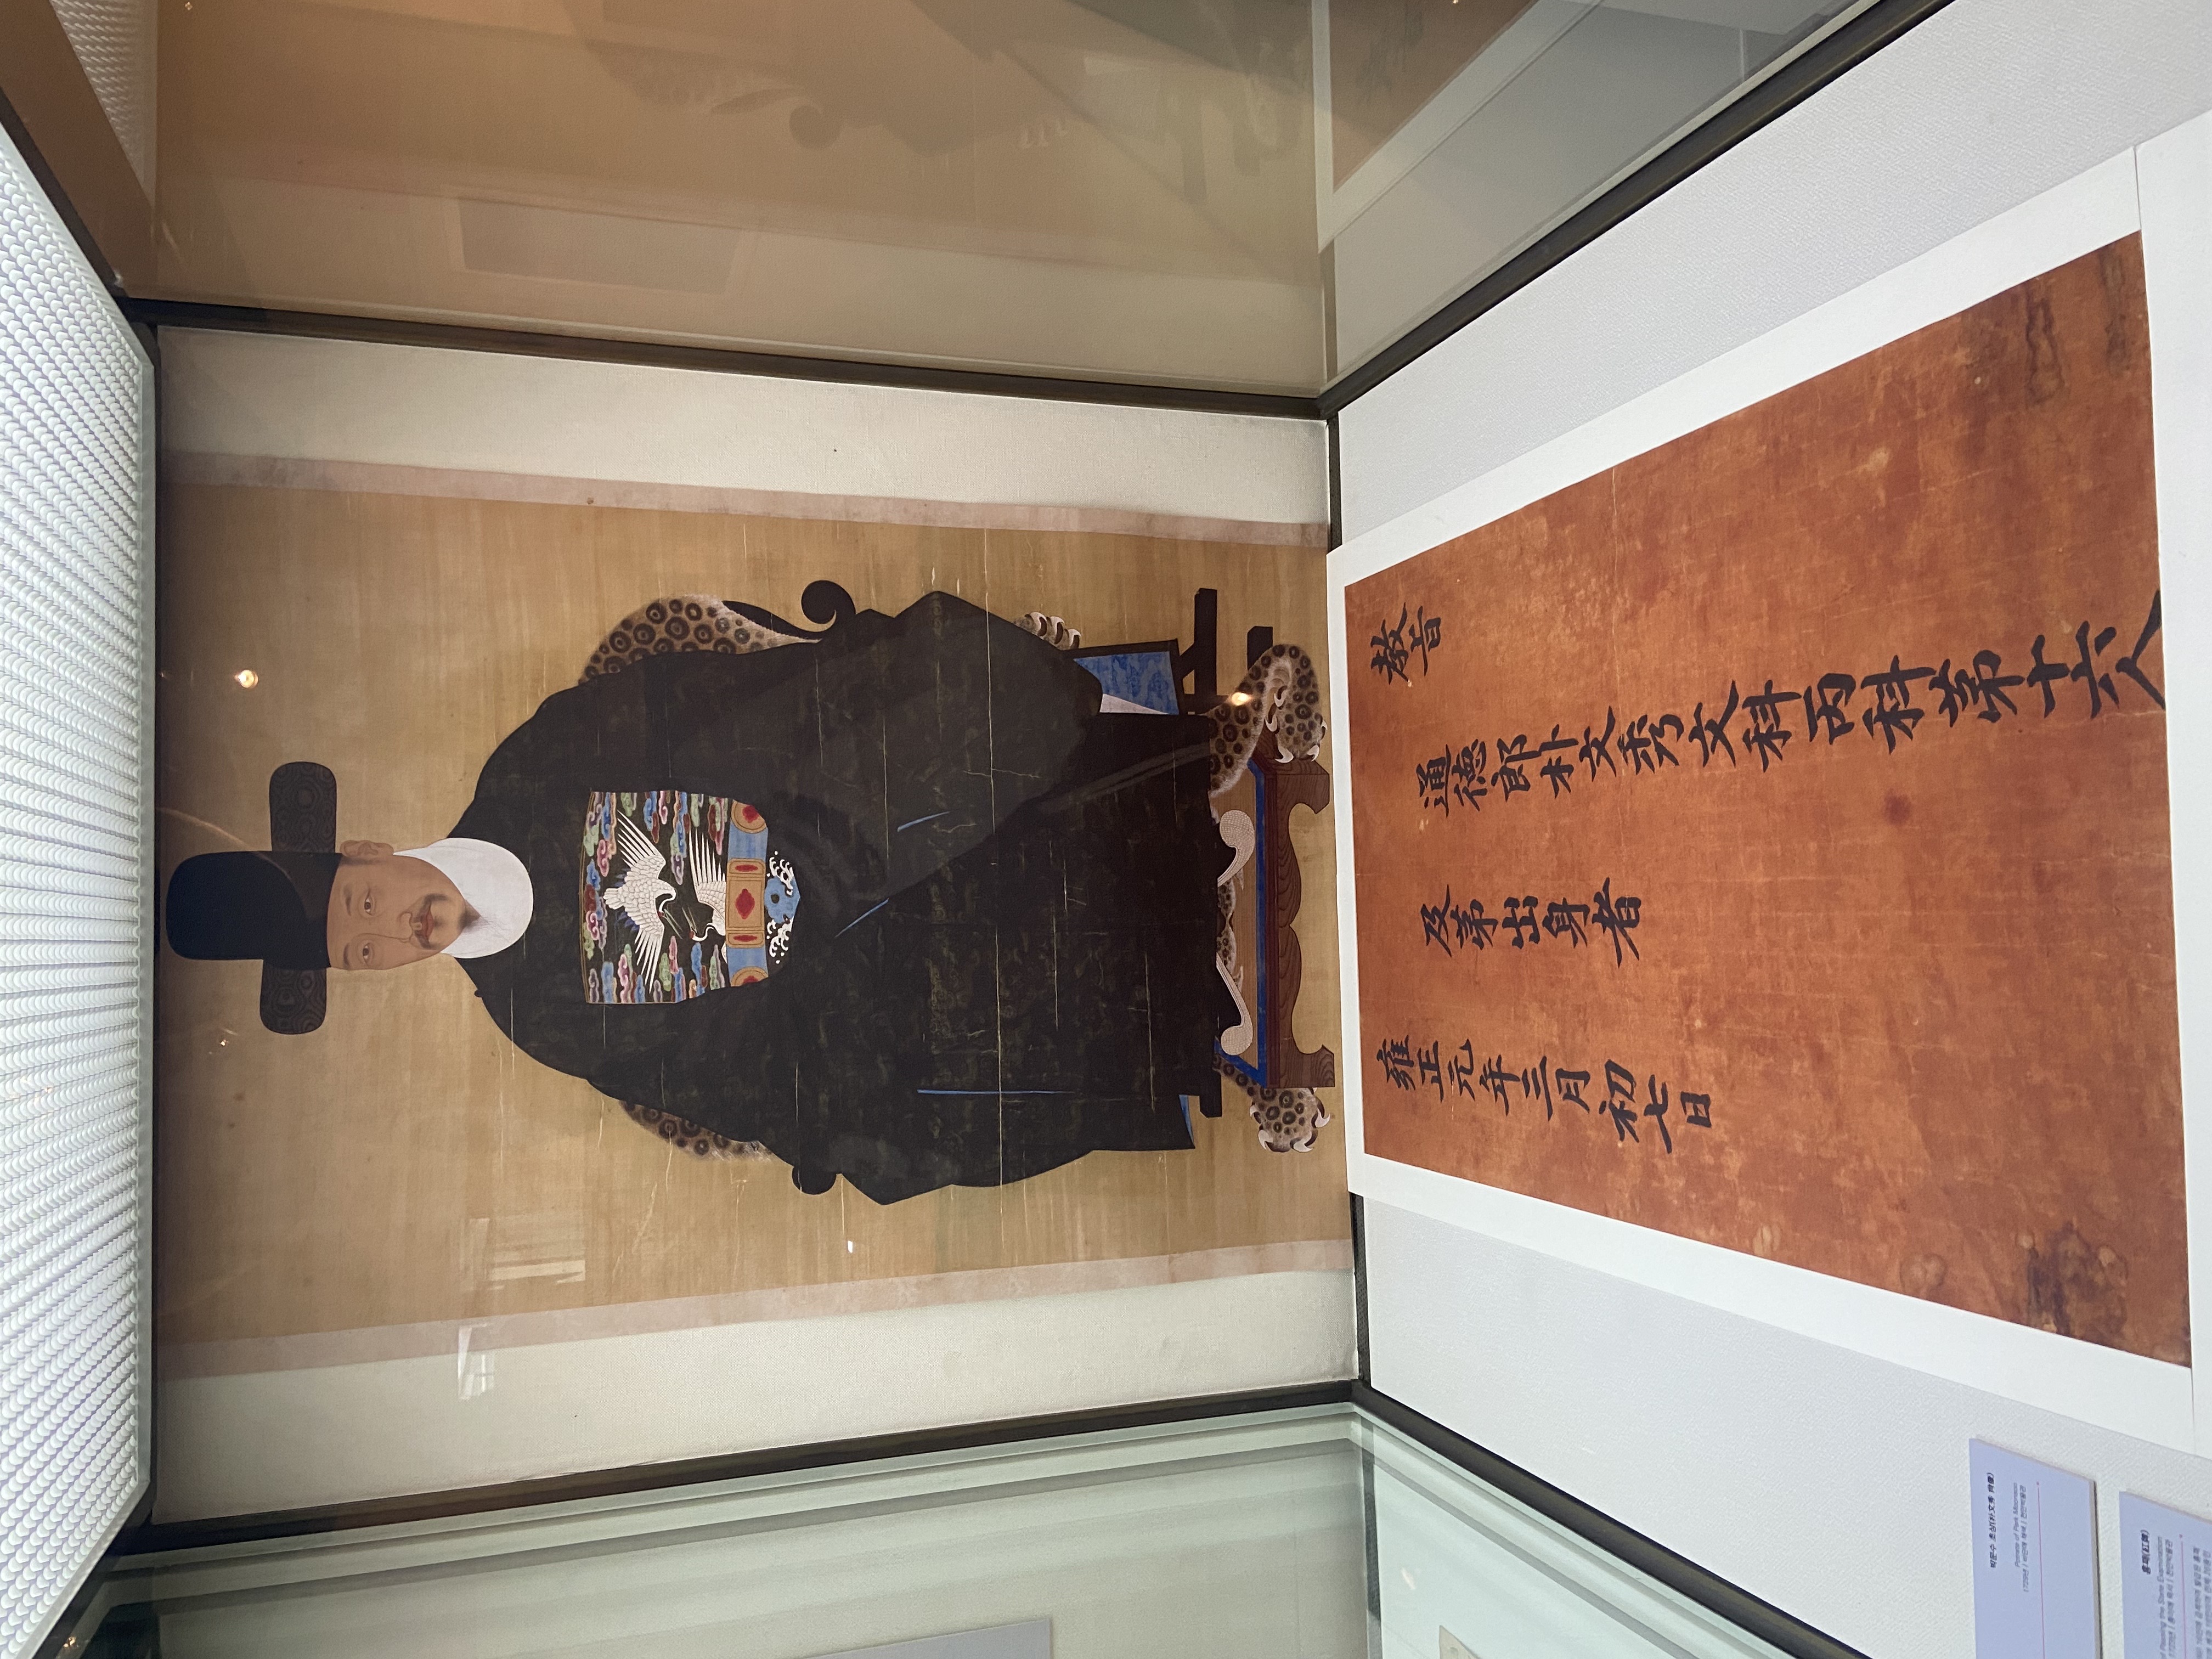 教旨
通德郎朴文秀文科丙科苐十六人
及苐出身者
雍正元年三月初七日
박문수 초상(朴文秀 肖像)
Portrate of Park Moonsoo
1729년 | 비단에 채색 | 천안박물관
홍패(紅牌)
of Passing the State Examination
1723년 | 종이에 묵서 | 천안박물관